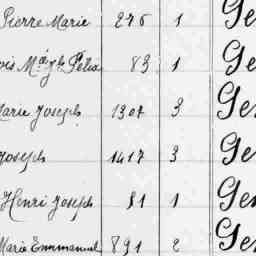 Pierre Marie 276 1 Ge
83 1 Ge
Marie Joseph 1307 3 Ge
Joseph 1417 3 Ge
Henri Joseph 81 1 Ge
Marie Emmanuel 891 2 Ge